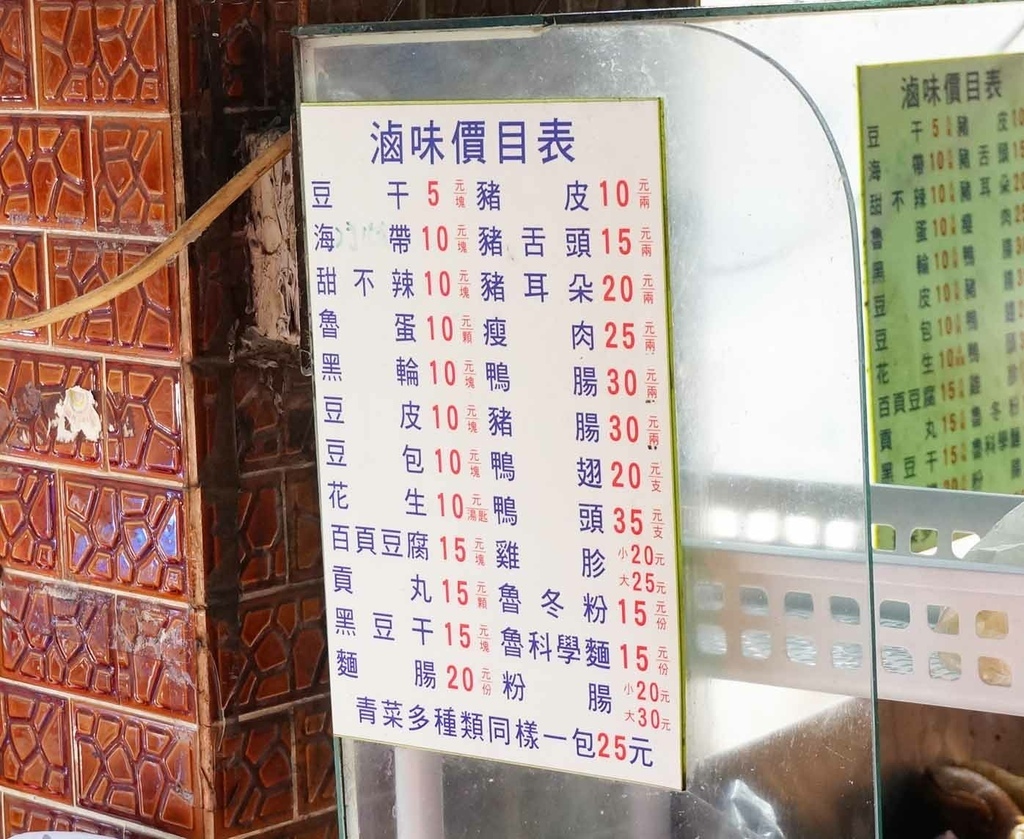 滷味價目表
豆干5元塊 豬皮10元兩
海帶10元塊 豬舌頭15元兩
甜不辣10元塊 豬耳朵20元兩
魯蛋10元顆 瘦肉25元兩
黑輪10元塊 鴨腸30元兩
豆皮10元塊 豬腸30元兩
豆包10元塊 鴨翅20元支
花生10元湯匙 鴨頭35元支
百頁豆腐15元塊 雞胗小20元大25元
貢丸15元顆 魯冬粉15元份
黑豆干15元塊 魯科學麵15元份
麵腸20元份 粉腸小20元大30元
青菜多種類同樣一包25元
滷味價目表
豆干5 豬皮10
海帶10 豬舌頭15
甜不辣10 豬耳朵20
魯蛋10 瘦肉25
黑輪10 鴨腸
豆皮10 豬腸
豆包10 鴨
花生10 鴨
百頁豆腐15 雞胗
貢丸15 魯冬粉
黑豆干15 魯科學麵
20 粉腸